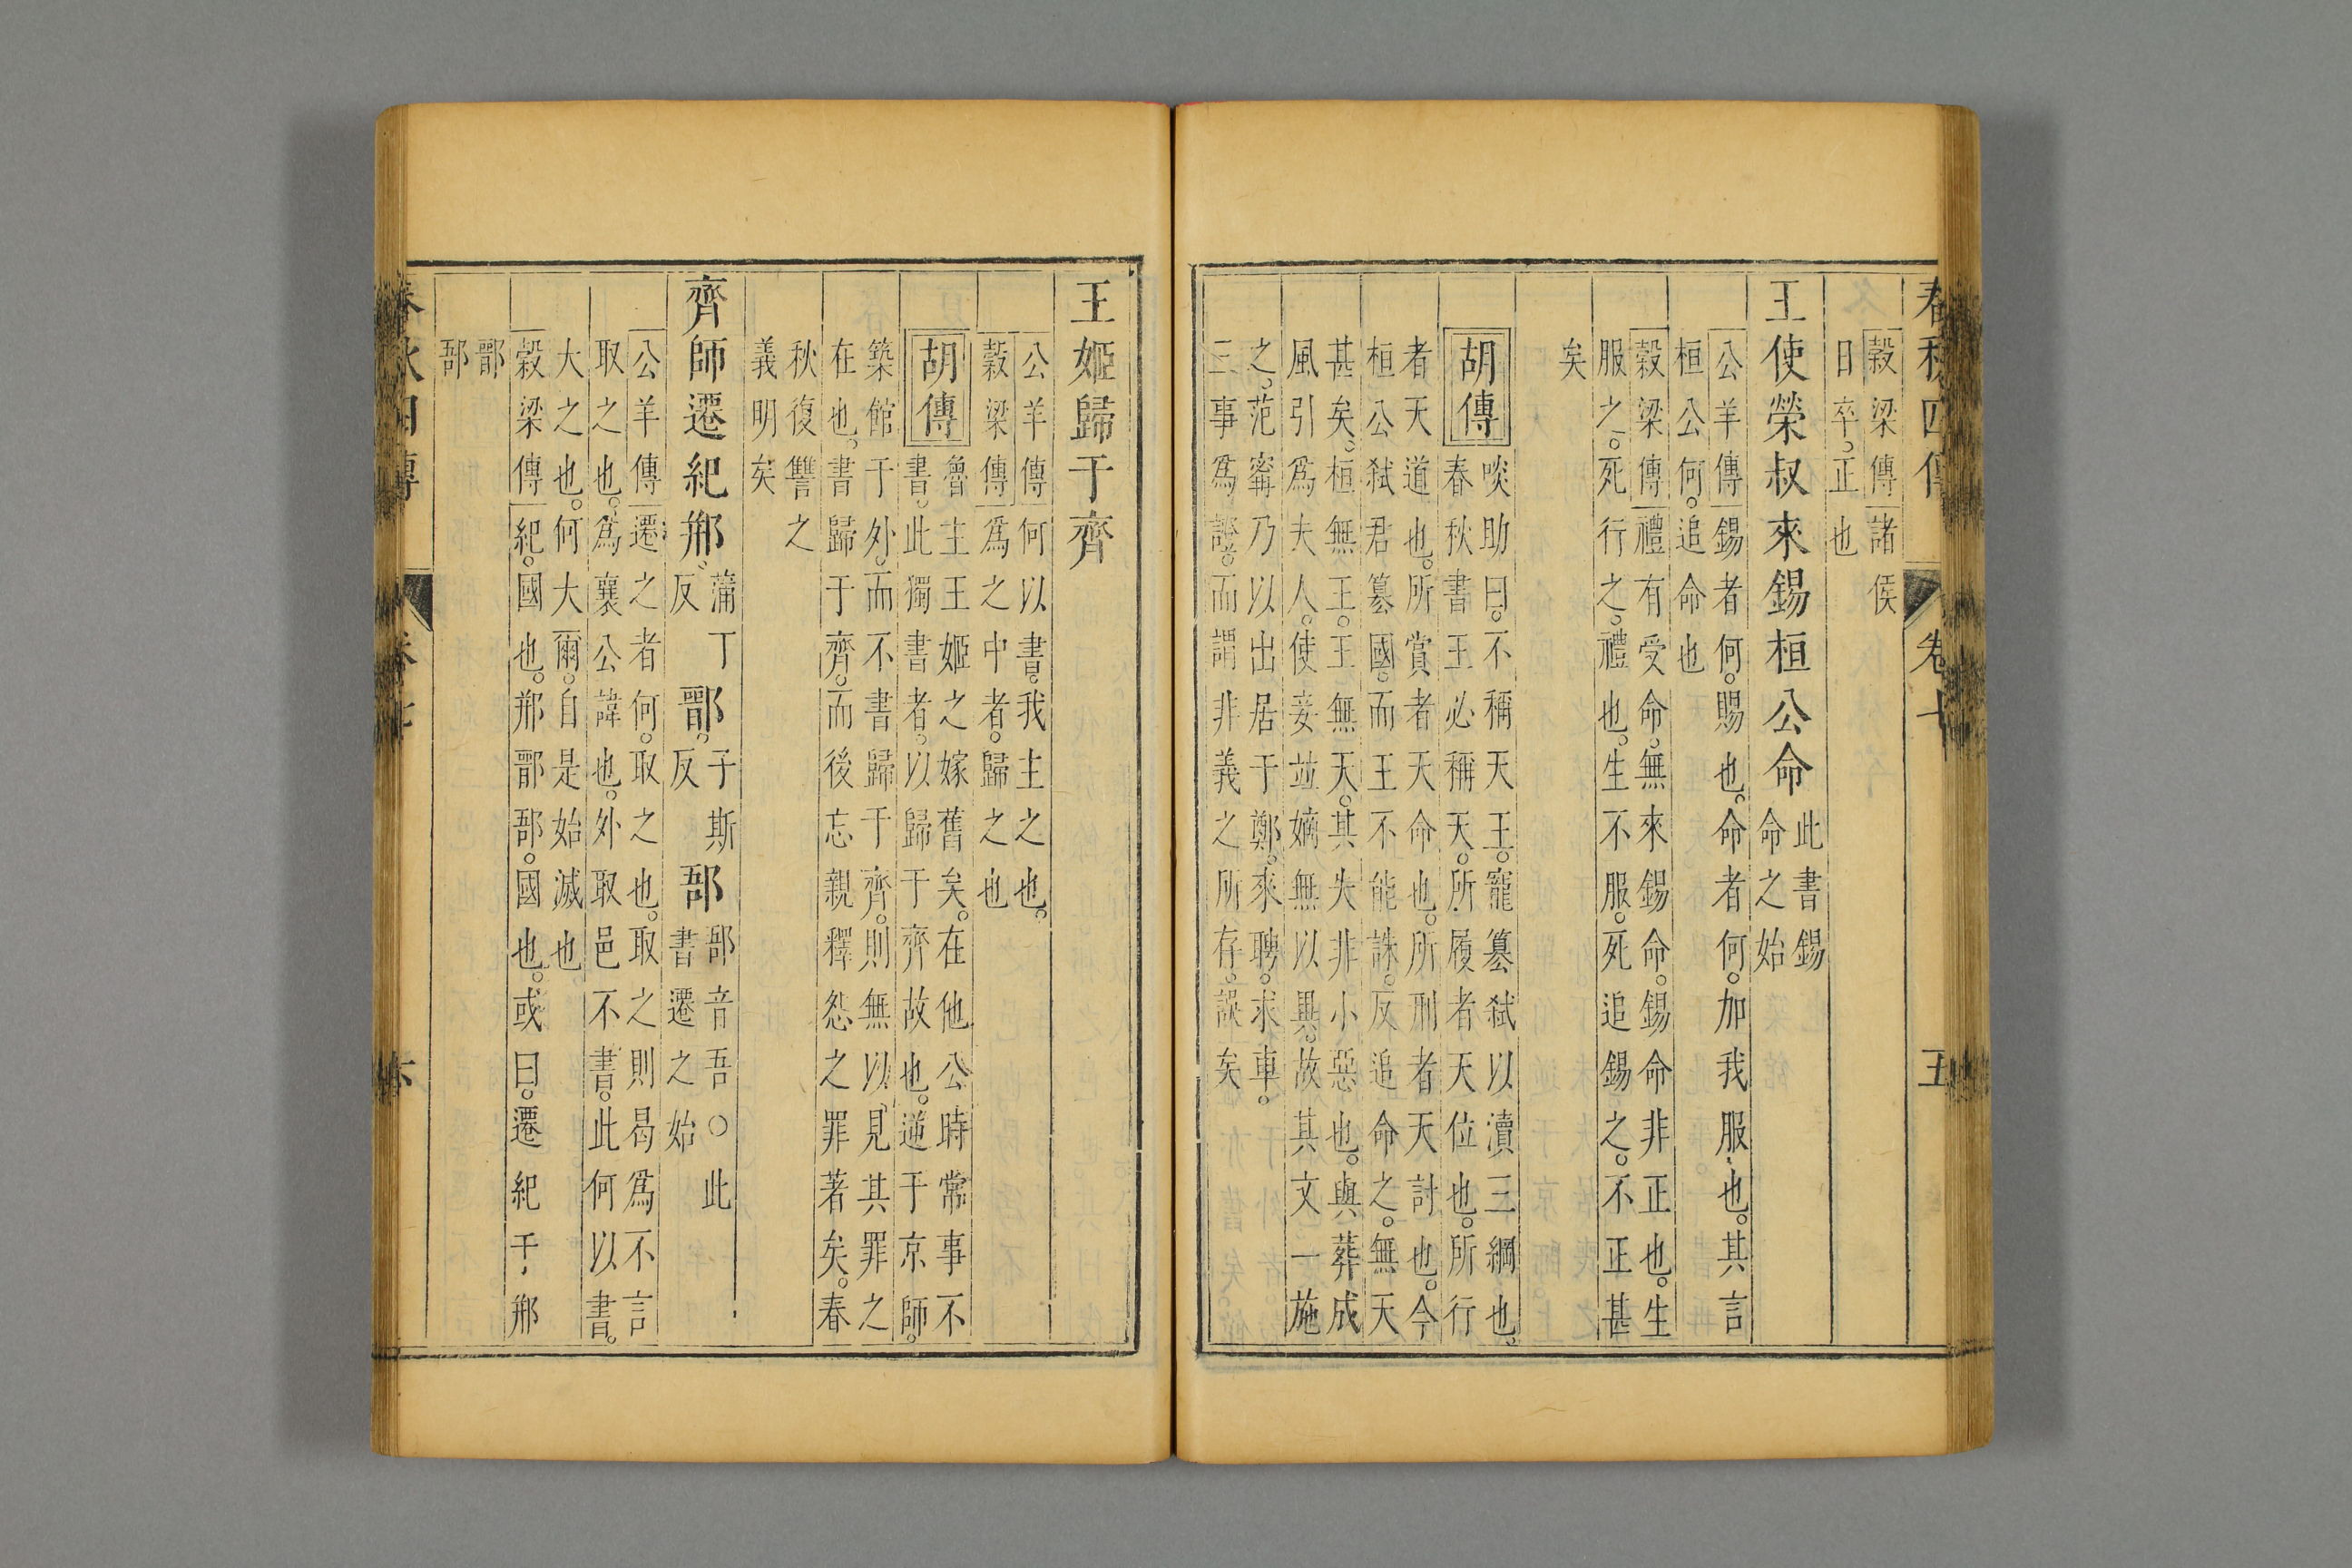 春秋四傳
卷七
五
穀梁傳諸侯
日卒正也
王使榮叔來錫桓公命
此書錫
命之始
公羊傳錫者何賜也命者何加我服也其言
桓公何追命也
穀梁傳禮有受命無來錫命錫命非正也生
服之死行之禮也生不服死追錫之不正甚
矣
胡傳
啖助曰不稱天王寵篡弑以瀆三綱也
春秋書王必稱天所履者天位也所行
者天道也所賞者天命也所刑者天討也今
桓公弑君篡國而王不能誅反追命之無天
甚矣桓無王王無天其失非小惡也與葬成
風引為夫人使妾並嫡無以異故其文一施
之范甯乃以出居于鄭來聘求車
三事為證而謂非義之所存誤矣
王姬歸于齊
公羊傳何以書我主之也
穀梁傳為之中者歸之也
胡傳
魯主王姬之嫁舊矣在他公時常事不
書此獨書者以歸于齊故也逆于京師
築館于外而不書歸于齊則無以見其罪之
在也書歸于齊而後忘親釋怨之罪著矣春
秋復讐之
義明矣
齊師遷紀郱
蒲丁
反
鄑
子斯
反
郚
郚音吾○此
書遷之始
公羊傳遷之者何取之也取之則曷為不言
取之也為襄公諱也外取邑不書此何以書
大之也何大爾自是始滅也
穀梁傳紀國也郱鄑郚國也或曰遷紀于郱
鄑
郚
春秋四傳
卷七
六